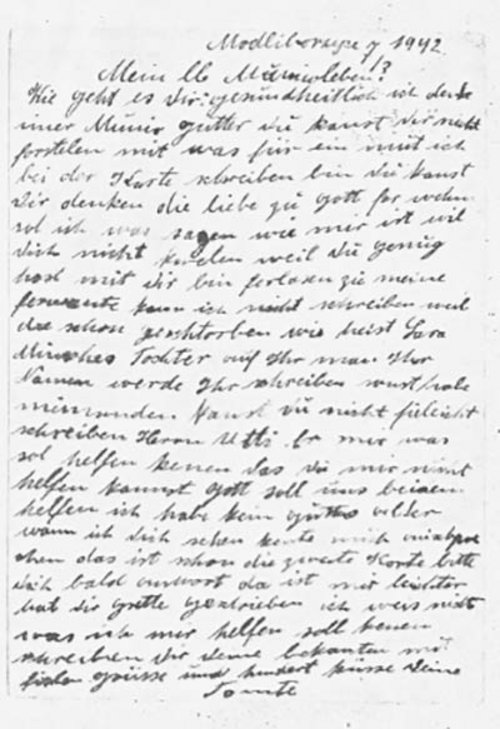 Modliborzyce 7 1942
Mein lb Münioleben!?
Wie geht es dir gesundheitlich ich denke
imer Münio gutter du kanst dir nicht
forstelen mit was für ein müt ich
bei der Karte schreiben bin du kanst
dir denken die liebe zu gott for wehn
sol ich was sagen wie mir ist wil
dich nicht weil du genug
hast mit dir bin ferlasen zu meine
ferwante kann ich nicht schreiben weil
die schon geschtorben wie heist Sara
Tochter auf Ihr man Ihr
Namen werde Ihr schreiben sonst habe
nimanden kanst du nicht fileicht
schreiben Herrn Utti Er mir was
sol helfen kenen das du mir nicht
helfen kannst gott soll uns beiden
helfen ich habe kein
wann ich dich sehen kente mich
chen das ist schon die zweite Karte bitte
dich bald antwort da ist mir leichter
hat dir gitte geschrieben ich weis nicht
was ich mir helfen soll kenen
schreiben dir deine bekanten mit
fielen grüsse und hundert küsse deine
Tante